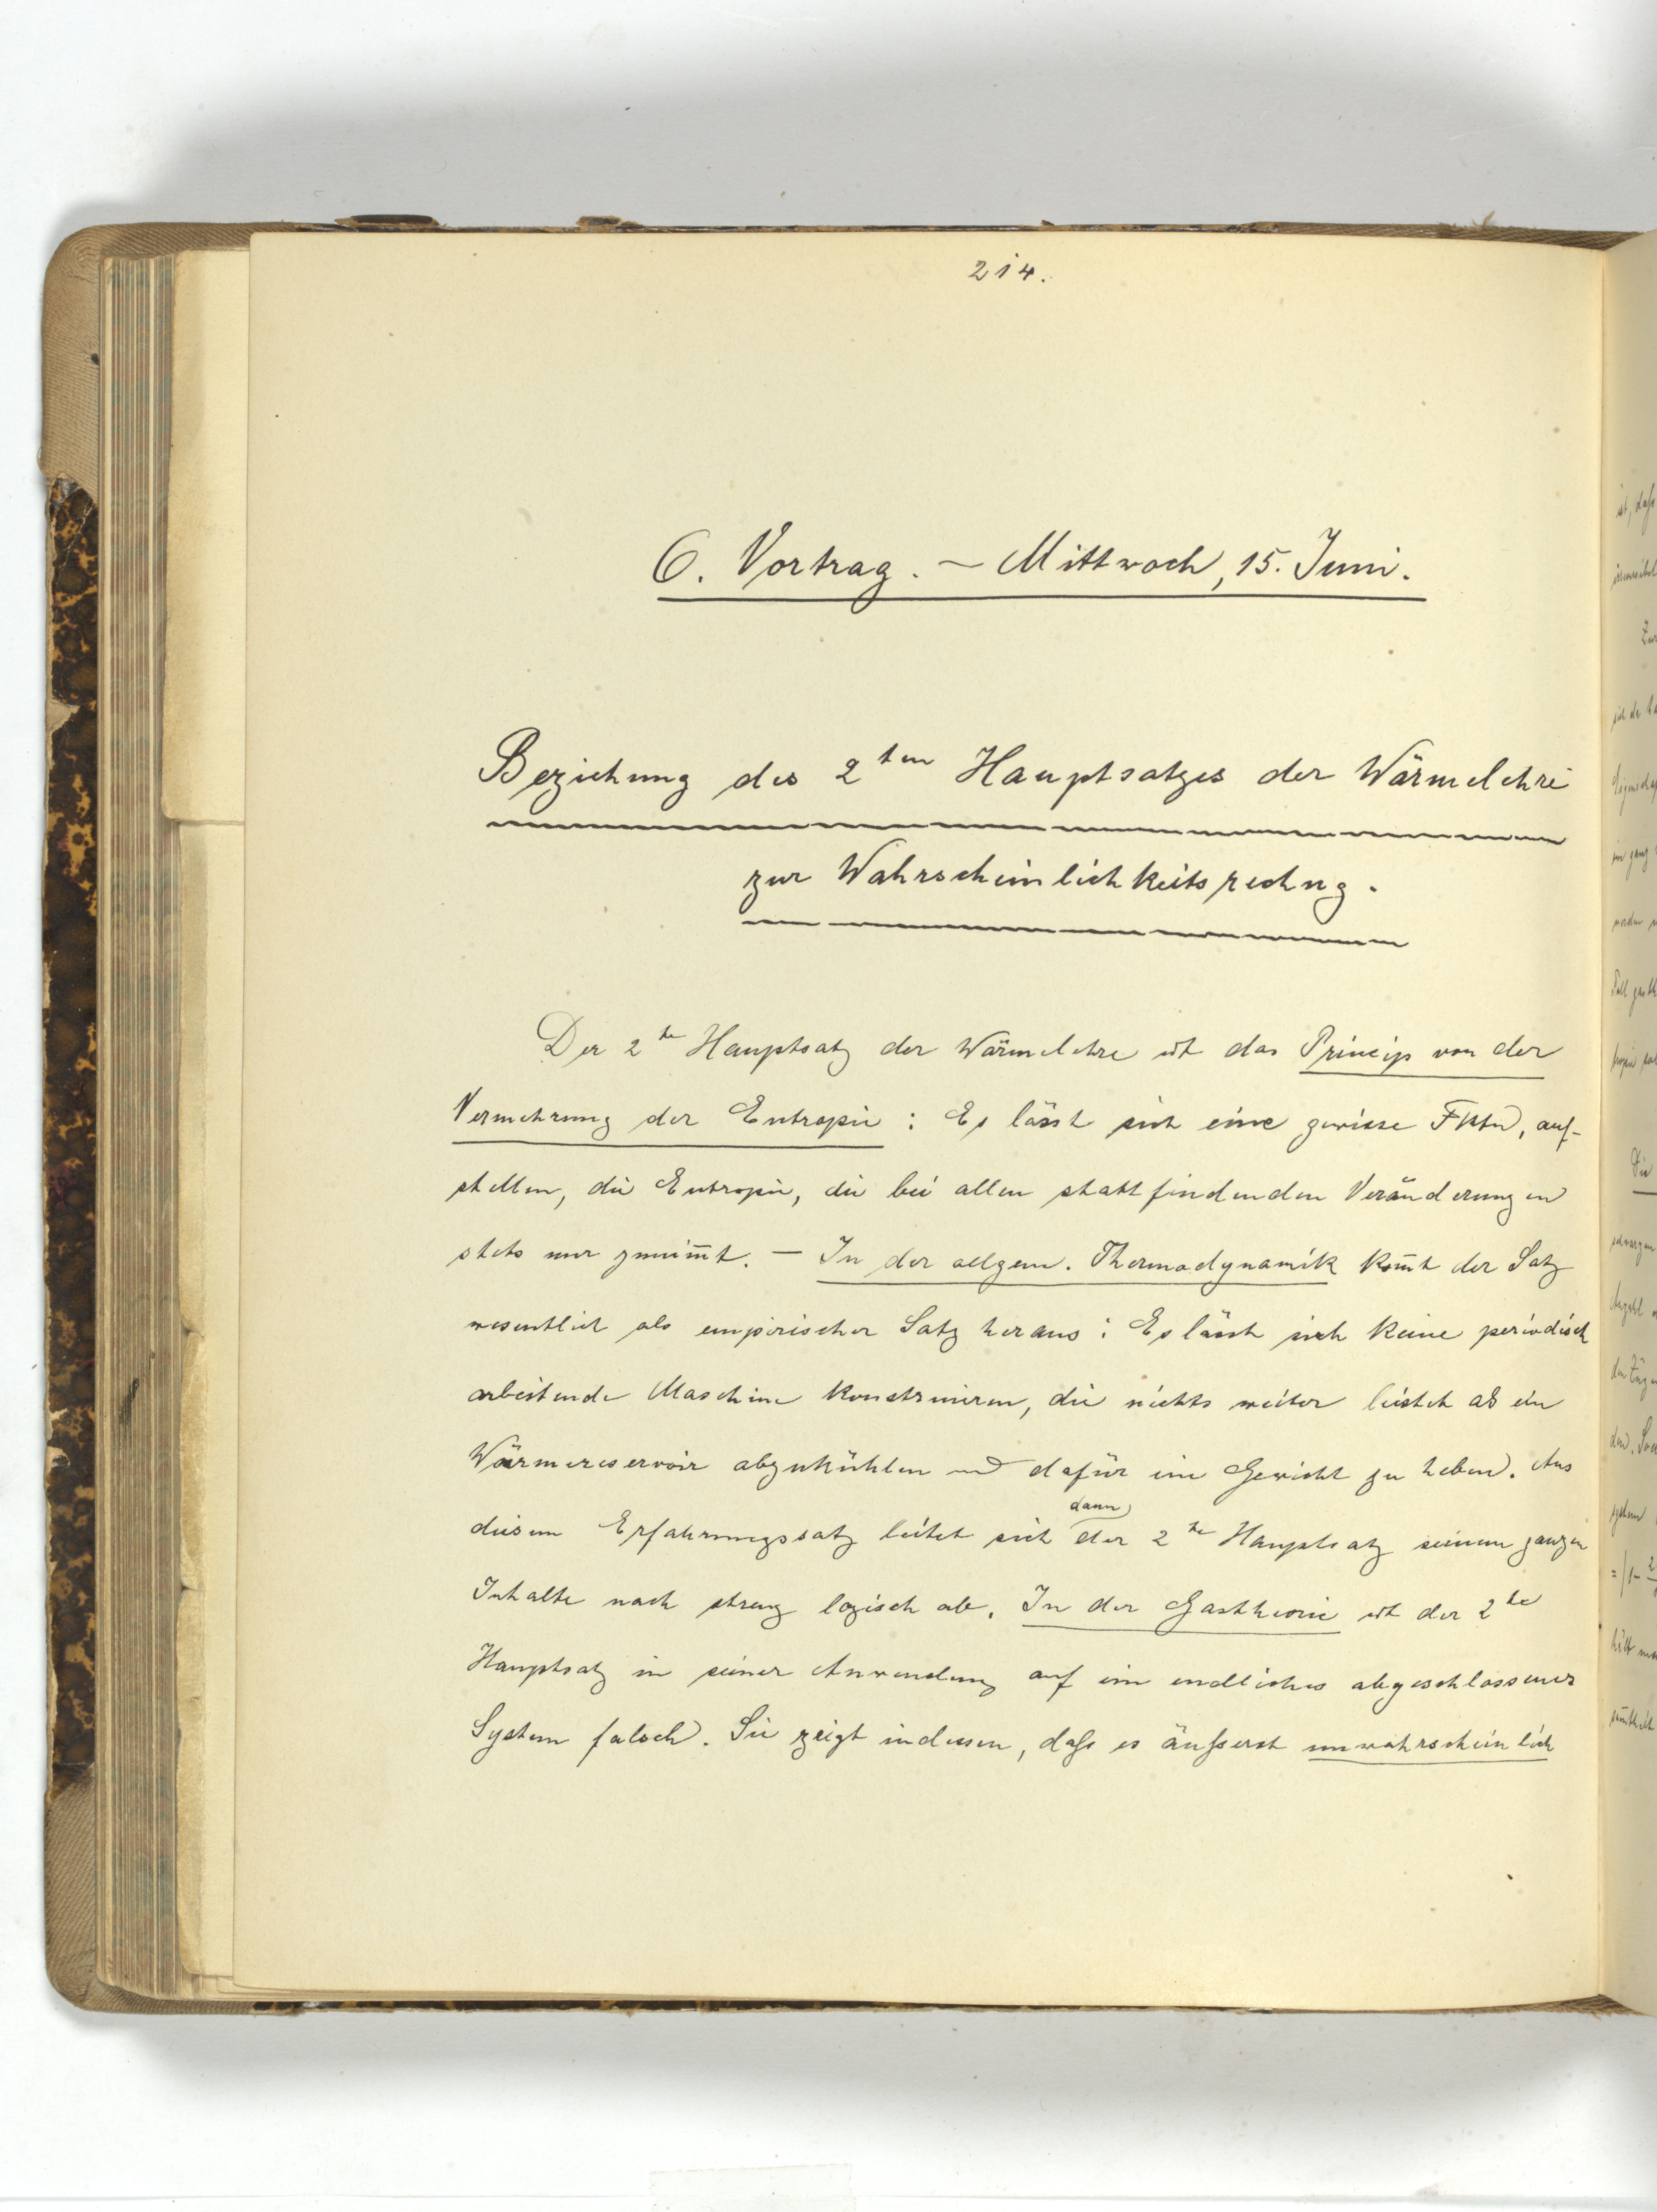 214.
6. Vortrag. – Mittwoch, 15. Juni.
Beziehung des 2ten Hauptsatzes der Wärmelehre
zur Wahrscheinlichkeitsrechng.
Der 2te Hauptsatz der Wärmelehre ist das Princip von der
Vermehrung der Entropie: Es lässt sich eine gewisse Fktn, auf-
stellen, die Entropie, die bei allen stattfindenden Veränderungen
stets nur zunim̅t. – In der allgem. Thermodynamik kom̅t der Satz
wesentlich als empirischer Satz heraus: Es lässt sich keine periodisch
arbeitende Maschine konstruieren, die nichts weiter leistet als ein
Wärmereservoir abzukühlen und dafür ein Gewicht zu heben. Aus
dann
diesem Erfahrungssatz leitet sich der 2te Hauptsatz seinem ganzen
Inhalte nach streng logisch ab. In der Gastheorie ist der 2te
Hauptsatz in seiner Anwendung auf ein endliches abgeschlossenes
System falsch. Sie zeigt indessen, daſs es äuſserst unwahrscheinlich
ist, daſs